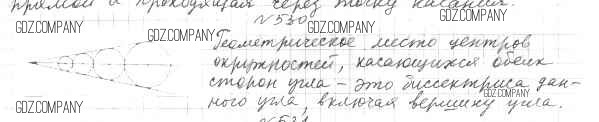 прямой и проходящая через точку касания.
№530
GDZ.COMPANY
GDZ.COMPANY
GDZ.COMPANY
GDZ.COMPANY
Геометрическое место центров
окружностей, касающихся обеих
сторон угла – это биссектриса дан-
ного угла, включая вершину угла.
GDZ.COMPANY
GDZ.COMPANY
№531